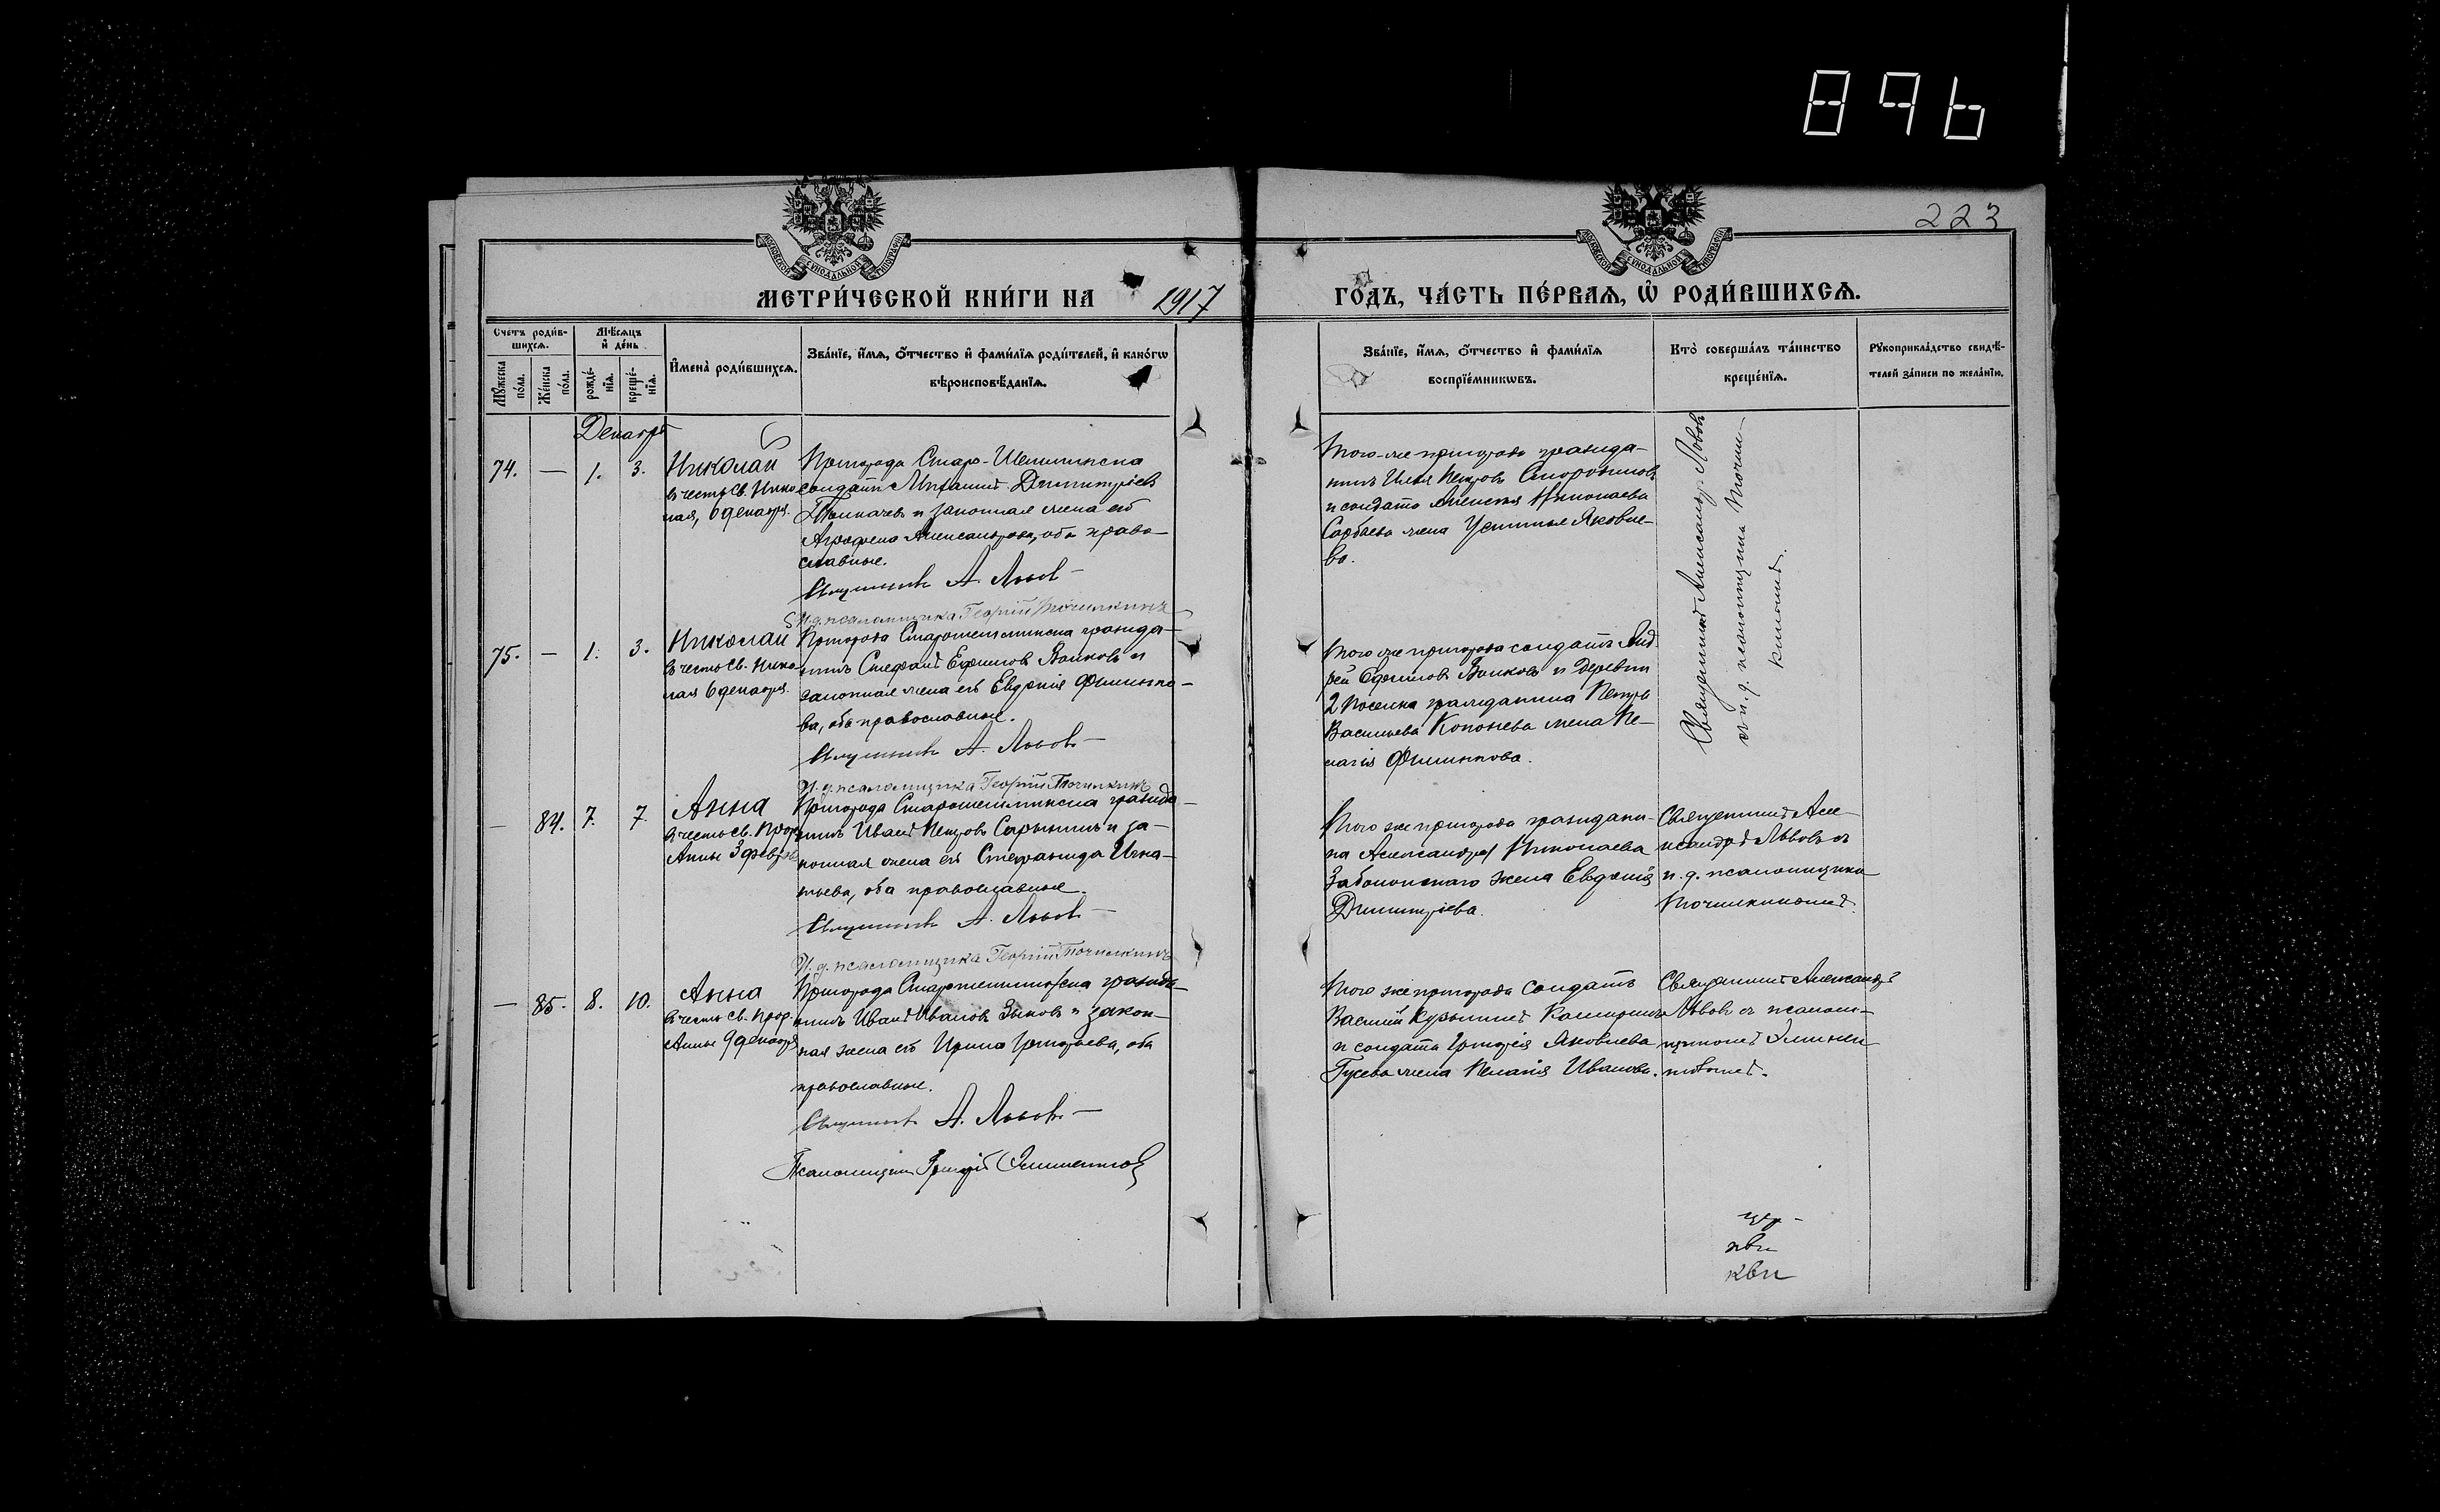 896
223
МОСКОВСКОЙ СУНОДАЛЬНОЙ ТИПОГРАФІИ
МОСКОВСКОЙ СУНОДАЛЬНОЙ ТИПОГРАФІИ
МЕТРИ́ЧЕСКОЙ КНИ́ГИ НА 1917 ГО́ДЪ, ЧА́СТЬ ПЕ́РВАѦ, Ѡ РОДИ́ВШИХСѦ.
Счетъ роди́в-
шихсѧ.
Мꙋ́жеска
по́ла.
Же́нска
по́ла.
Мѣ́сѧцъ
и҆ де́нь
рожде́-
нїѧ.
креще́-
нїѧ.
И҆мена̀ роди́вшихсѧ.
Зва́нїе, и҆́мѧ, ѻ҆́тчество и҆ фами́лїѧ роди́телей, и҆ како́гѡ
вѣроисповѣ́данїѧ.
Зва́нїе, и҆́мѧ, ѻ҆́тчество и҆ фами́лїѧ
воспрїе́мникѡвъ.
Кто̀ соверша́лъ та́инство
креще́нїѧ.
Рꙋкоприкла́дство свидѣ́-
телей за́писи по жела́нїю.
Декабрь
74. — 1. 3.
Николай
въ честь Св. Нико
лая, 6 декабря.
Пригорода Старо-Шешминска
солдатъ Михаилъ Димитріевъ
Толкачевъ и законная жена его
Агрофена Александрова, оба право-
славные.
Священникъ А. Львовъ
И. д. псаломщика Георгій Точилкинъ
Того-же пригорода гражда-
нинъ Илья Петровъ Сторожиловъ
и солдата Алексея Николаева
Сарбаева жена Устинья Яковле-
ва.
Священникъ Александръ Львовъ
съ и. д. псаломщика Точил-
кинымъ.
75. — 1. 3.
Николай
въ честь Св. Нико
лая 6 декабря.
Пригорода Старошешминска гражда-
нинъ Стефанъ Ефимовъ Волковъ и
законная жена его Евдокія Филиппо-
ва, оба православные.
Священникъ А. Львовъ
И. д. псаломщика Георгій Точилкинъ
Того же пригорода солдатъ Анд
рей Ефимовъ Волковъ и деревни
2 Поселка гражданина Петра
Васильева жена Пе-
лагія Филиппова.
— 84. 7. 7.
Анна
въ честь Св. Прор.
Анны 3 февраля
Пригорода Старошешминска гражда-
нинъ Иванъ Петровъ Сарычинъ и за-
конная жена его Стефанида Игна-
тьева, оба православные.
Священникъ А. Львовъ
И. д. псаломщика Георгій Точилкинъ
Того же пригорода граждани-
на Александра Николаева
Заболонскаго жена Евдокія
Димитріева.
Священникъ Але
ксандръ Львовъ съ
и. д. псаломщика
Точилкинымъ.
— 85. 8. 10.
Анна
въ честь Св. Прор.
Анны 9 декабря
Пригорода Старошешминска гражда-
нинъ Иванъ Ивановъ Зыковъ и закон-
ная жена его Ирина Григорьева, оба
православные.
Священникъ А. Львовъ
Псаломщикъ Григорій
Того же пригорода солдатъ
Василій Кузьминъ
и солдата Григорія Яковлева
Гусева жена Пелагія Иванова.
Священникъ Александръ
Львовъ съ псалом-
щикомъ
кви